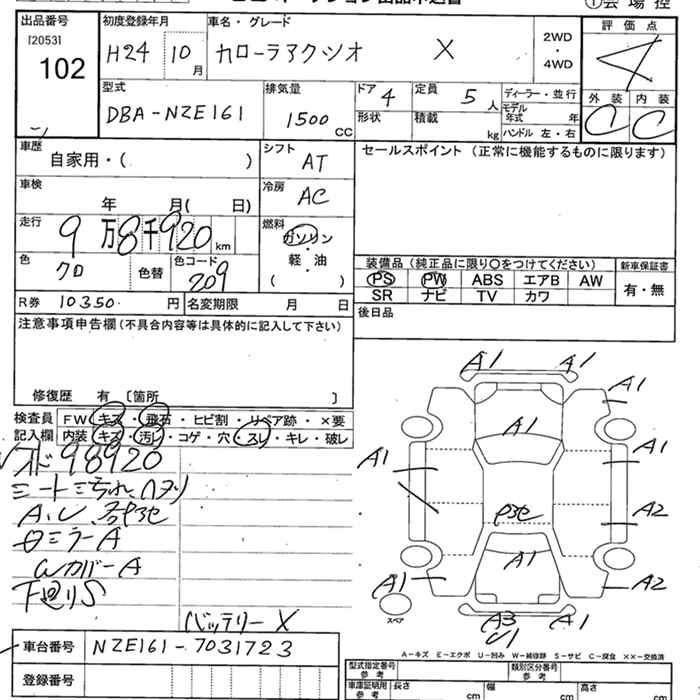 ①会場控
出品番号 初度登録年月 車名・グレード 評価点
[2053] 102 H24 10月 カローラアクシオ X 2WD・4WD 4
外装 内装
C C
型式 排気量 ドア 定員 ディーラー・並行
DBA-NZE161 1500 CC 4 5人 モデル年式 年
形状 積載 kg ハンドル 左・右
車歴 シフト セールスポイント(正常に機能するものに限ります)
自家用・( ) AT
車検 冷房
年 月( 日) AC
走行 燃料
9万8千920 km ガソリン・軽・油
( )
色 色替 色コード
クロ 209
装備品(純正品に限り〇をつけてください) 新車保証書
PS PW ABS エアB AW 有・無
SR ナビ TV カワ
R券 10350 円 名変期限 月 日
後日品
注意事項申告欄(不具合内容等は具体的に記入して下さい)
修復歴 有 〔箇所 〕
検査員記入欄
FW キズ・飛石・ヒビ割・リペア跡・×要
内装 キズ・汚レ・コゲ・穴・スレ・キレ・破レ
98920
シート
ミラーA
WカバーA
下廻りS
バッテリーX
A1 A1
A1
A1
A1 A1
A2
A1
A1 A2
A3 A1
U1
スペア
A-キズ E-エクボ U-凹み W-補修跡 S-サビ C-腐食 XX-交換済
車台番号 NZE161-7031723
登録番号
型式指定番号 参考 類別区分番号 参考
車庫証明用 参考 長さ cm 幅 cm 高さ cm